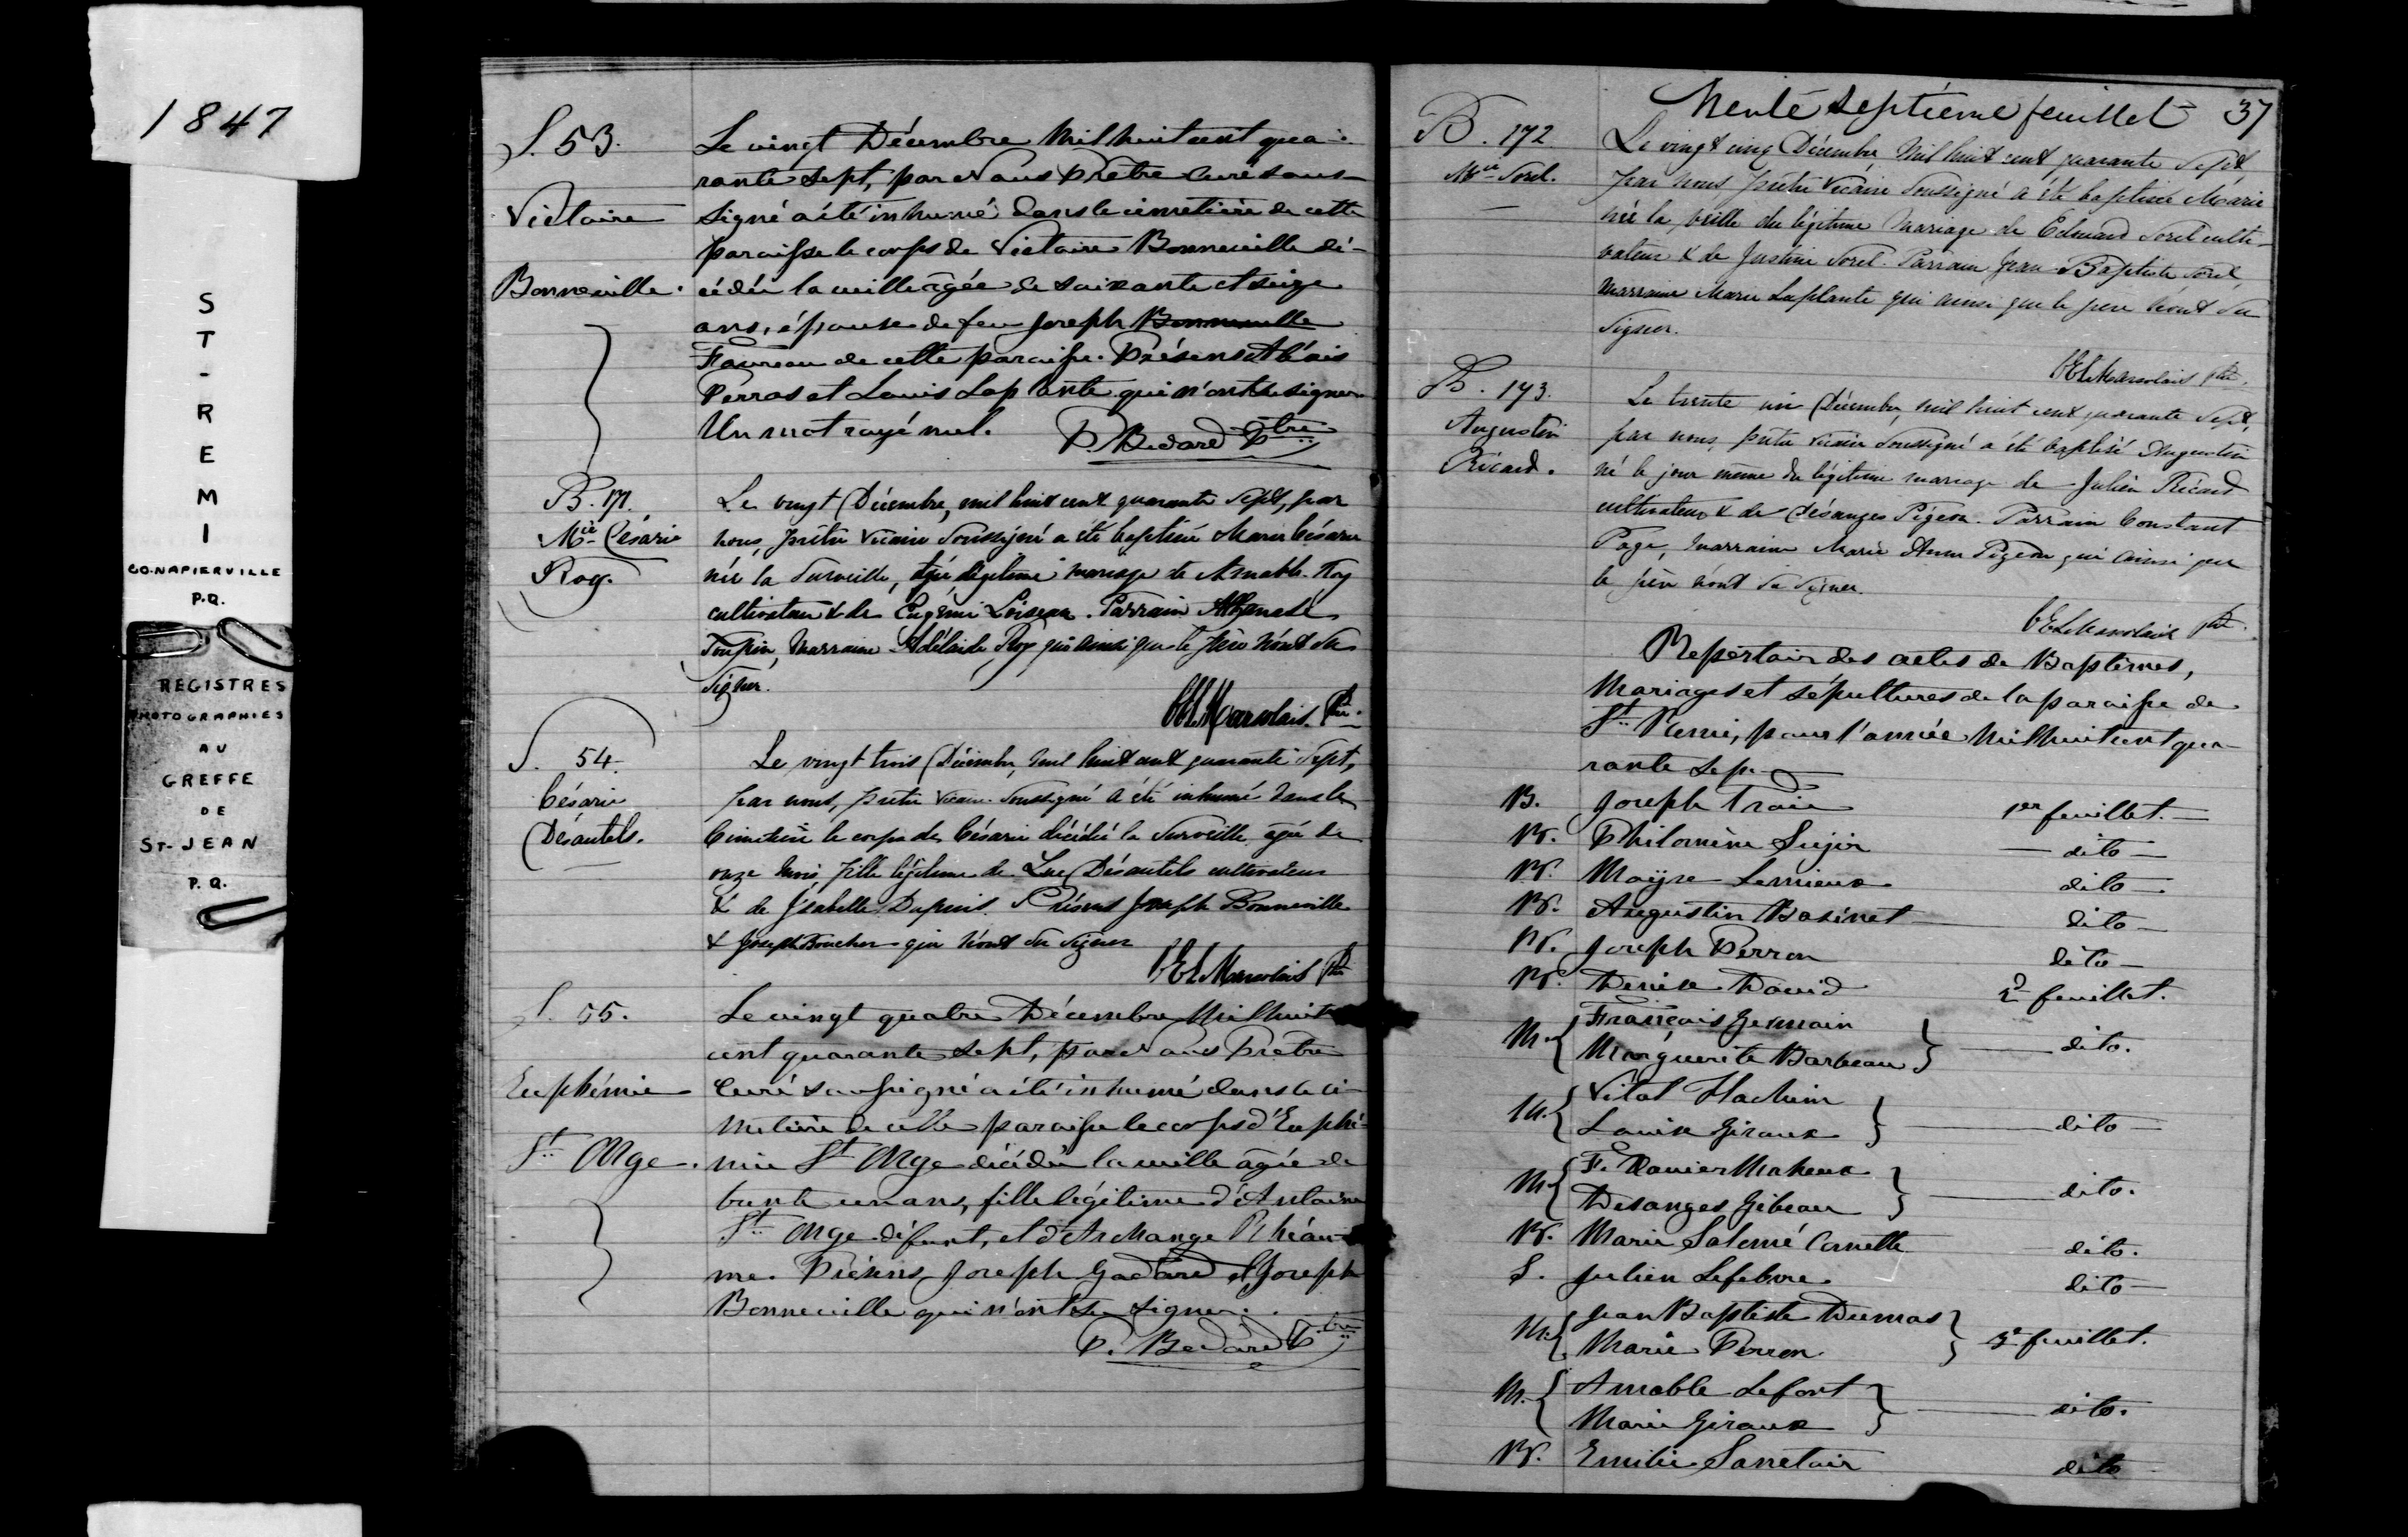 1847
S
T
-
R
E
M
I
CO. NAPIERVILLE
P.Q.
REGISTRES
PHOTOGRAPHIES
AU
GREFFE
DE
ST-JEAN
P.Q.
S. 53.
Victoire
Bonneville.
Le vingt Décembre Mil huit cent qua-
rante sept, par Nous Prêtre Curé sous-
signé a été inhumé dans le cimetière de cette
paroisse le corps de Victoire Bonneville dé-
cédée la veille agée de soixante et seize
ans, épouse de feu Joseph Bonneville
Favreau de cette paroisse. Présens
Perras et Louis Laplante qui n'ont su signer
Un mot rayé nul. P. Bedard Ptre
B. 171.
Mie Césarie
Roy.
Le vingt Décembre, mil huit cent quarante sept, par
nous, prêtre vicaire soussigné a été baptisée Marie Césarie
née la surveille, du légitime mariage de Amable Roy
cultivateur & de Eugénie Loiseau. Parrain
Toupin, Marraine Adélaide Roy qui ainsi que le père n'ont su
signer.
Marsolais Ptre
S. 54.
Césarie
Désautels.
Le vingt trois Décembre, mil huit cent quarante sept,
par nous, prêtre vicaire soussigné a été inhumé dans le
Cimetière le corps de Césarie décédée la surveille agée de
onze mois fille légitime de Luc Désautels cultivateur
& de Isabelle Dupuis. Présens Joseph Bonneville
& Joseph Boucher qui n'ont su signer
Marsolais Ptre
S. 55.
Euphémie
St Onge.
Le vingt quatre Décembre Mil huit
cent quarante sept, par Nous Prêtre
Curé soussigné a été inhumé dans le ci-
metière de cette paroisse le corps d'Euphé-
mie St Onge décédée la veille agée de
trente un ans, fille légitime d'Antoine
St Onge défunt, et d'Archange Rhéau-
me. Présens Joseph et Joseph
Bonneville qui n'ont su signer.
P. Bedard Ptre
Trente septième feuillet 37
B. 172
Mie Sorel.
Le vingt cinq Décembre, mil huit cent quarante sept,
par nous prêtre vicaire soussigné a été baptisée Marie
née la veille du légitime mariage de Edouard Sorel culti-
vateur & de Justine Sorel. Parrain Jean-Baptiste Sorel,
marraine Marie Laplante qui ainsi que le père n'ont su
signer.
Marsolais Ptre
B. 173.
Augustin
Ricard.
Le trente un Décembre, mil huit cent quarante sept,
par nous, prêtre vicaire soussigné a été baptisé Augustin
né le jour même du légitime mariage de Julien Ricard
cultivateur & de Désanges Pigeon. Parrain Constant
Page, marraine Marie Anne Pigeon qui ainsi que
le père n'ont su signer.
Marsolais Ptre
Repertoire des actes de Baptêmes,
Mariages et sépultures de la paroisse de
St Remi, pour l'année Mil huit cent qua-
rante sept.
B. Joseph 1er feuillet.
B. Philomène dito
B. Moyse Lemieux dito
B. Augustin Basinet dito
B. Joseph Perron dito
B. Denise David 2d feuillet.
M. { François Germain
Marguerite Barbeau } dito.
M. { Vital
Louise Giroux } dito
M. { F. Xavier Maheux
Desanges Gibeau } dito.
B. Marie Salomé dito.
S. Julien Lefebvre dito
M. { Jean Baptiste Dumas
Marie Perron } 3e feuillet.
M. { Amable Lefort
Marie Giroux } dito.
B. Emilie dito